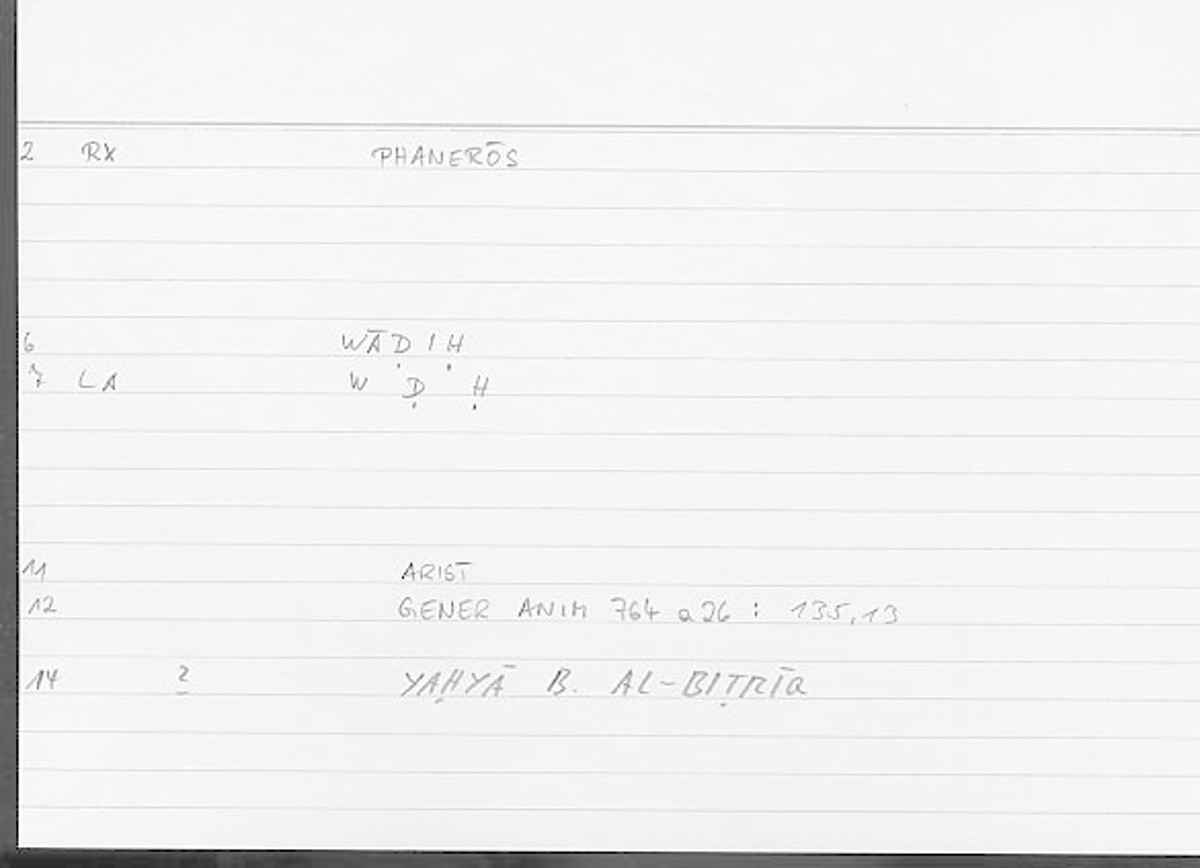 2 RX PHANERŌS
6 WĀḌIḤ
7 LA W Ḍ Ḥ
11 ARIST
12 GENER ANIM 764 a26 : 135,13
14 2 YAḤYĀ B. AL-BIṬRĪQ